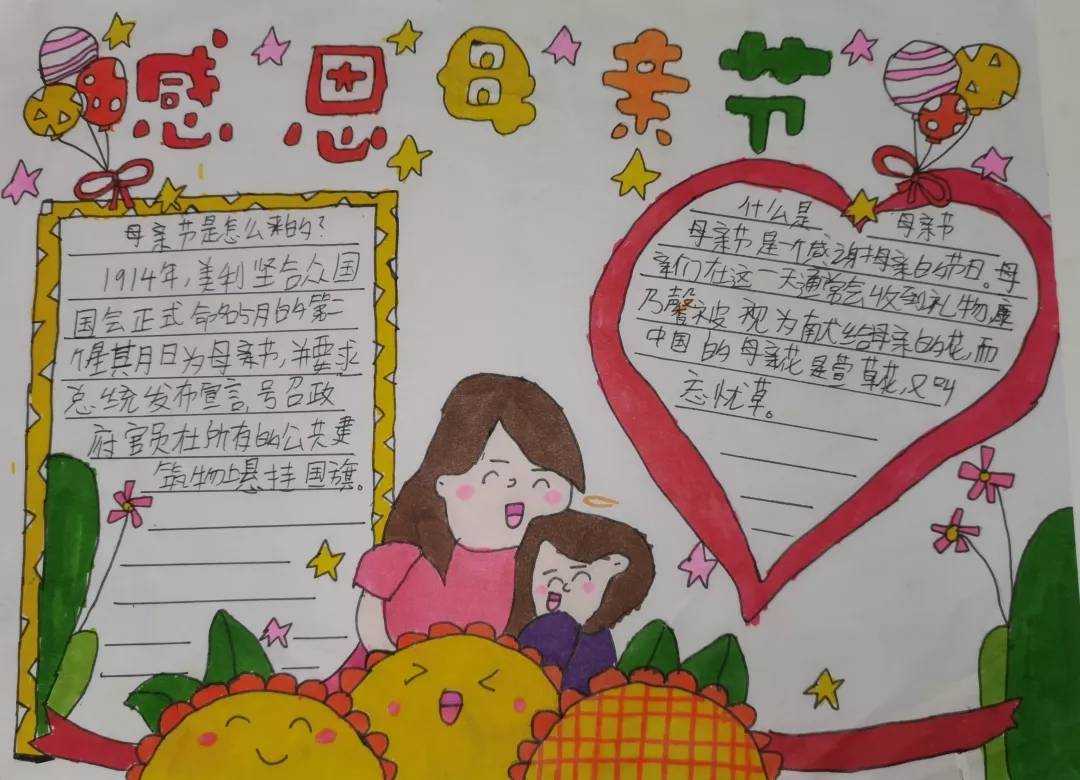 感恩母亲节
母亲节是怎么来的？
1914年，美利坚合众国
国会正式命名5月的第二
个星其月日为母亲节，并要求
总统发布宣言，号召政
府官员在所有的公共建
筑物上悬挂国旗。
什么是 母亲节
母亲节是一个感谢母亲的节日。母
亲们在这一天通常会收到礼物，康
乃馨被视为献给母亲的花，而
中国的母亲花是萱草花，又叫
忘忧草。